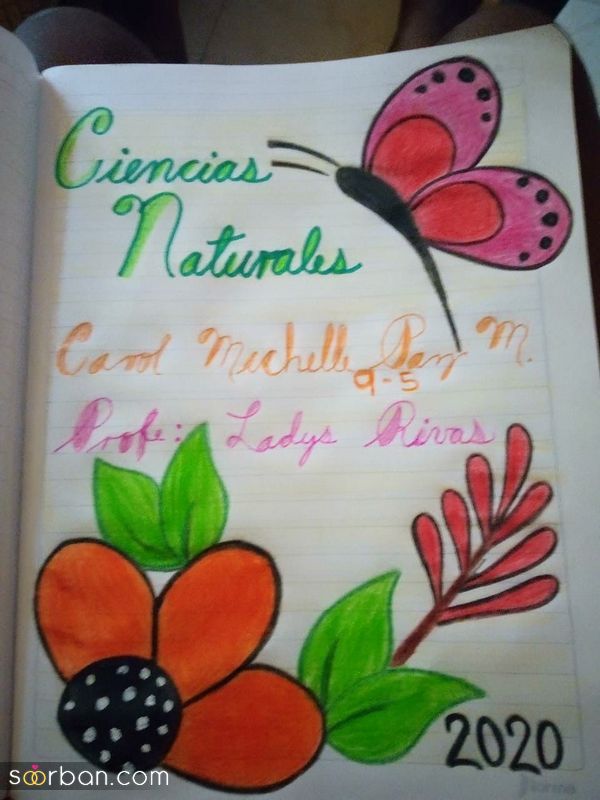 Ciencias
Naturales
Carol Michelle Paz M.
9-5
Profe: Ladys Rivas
2020
soorban.com
norma